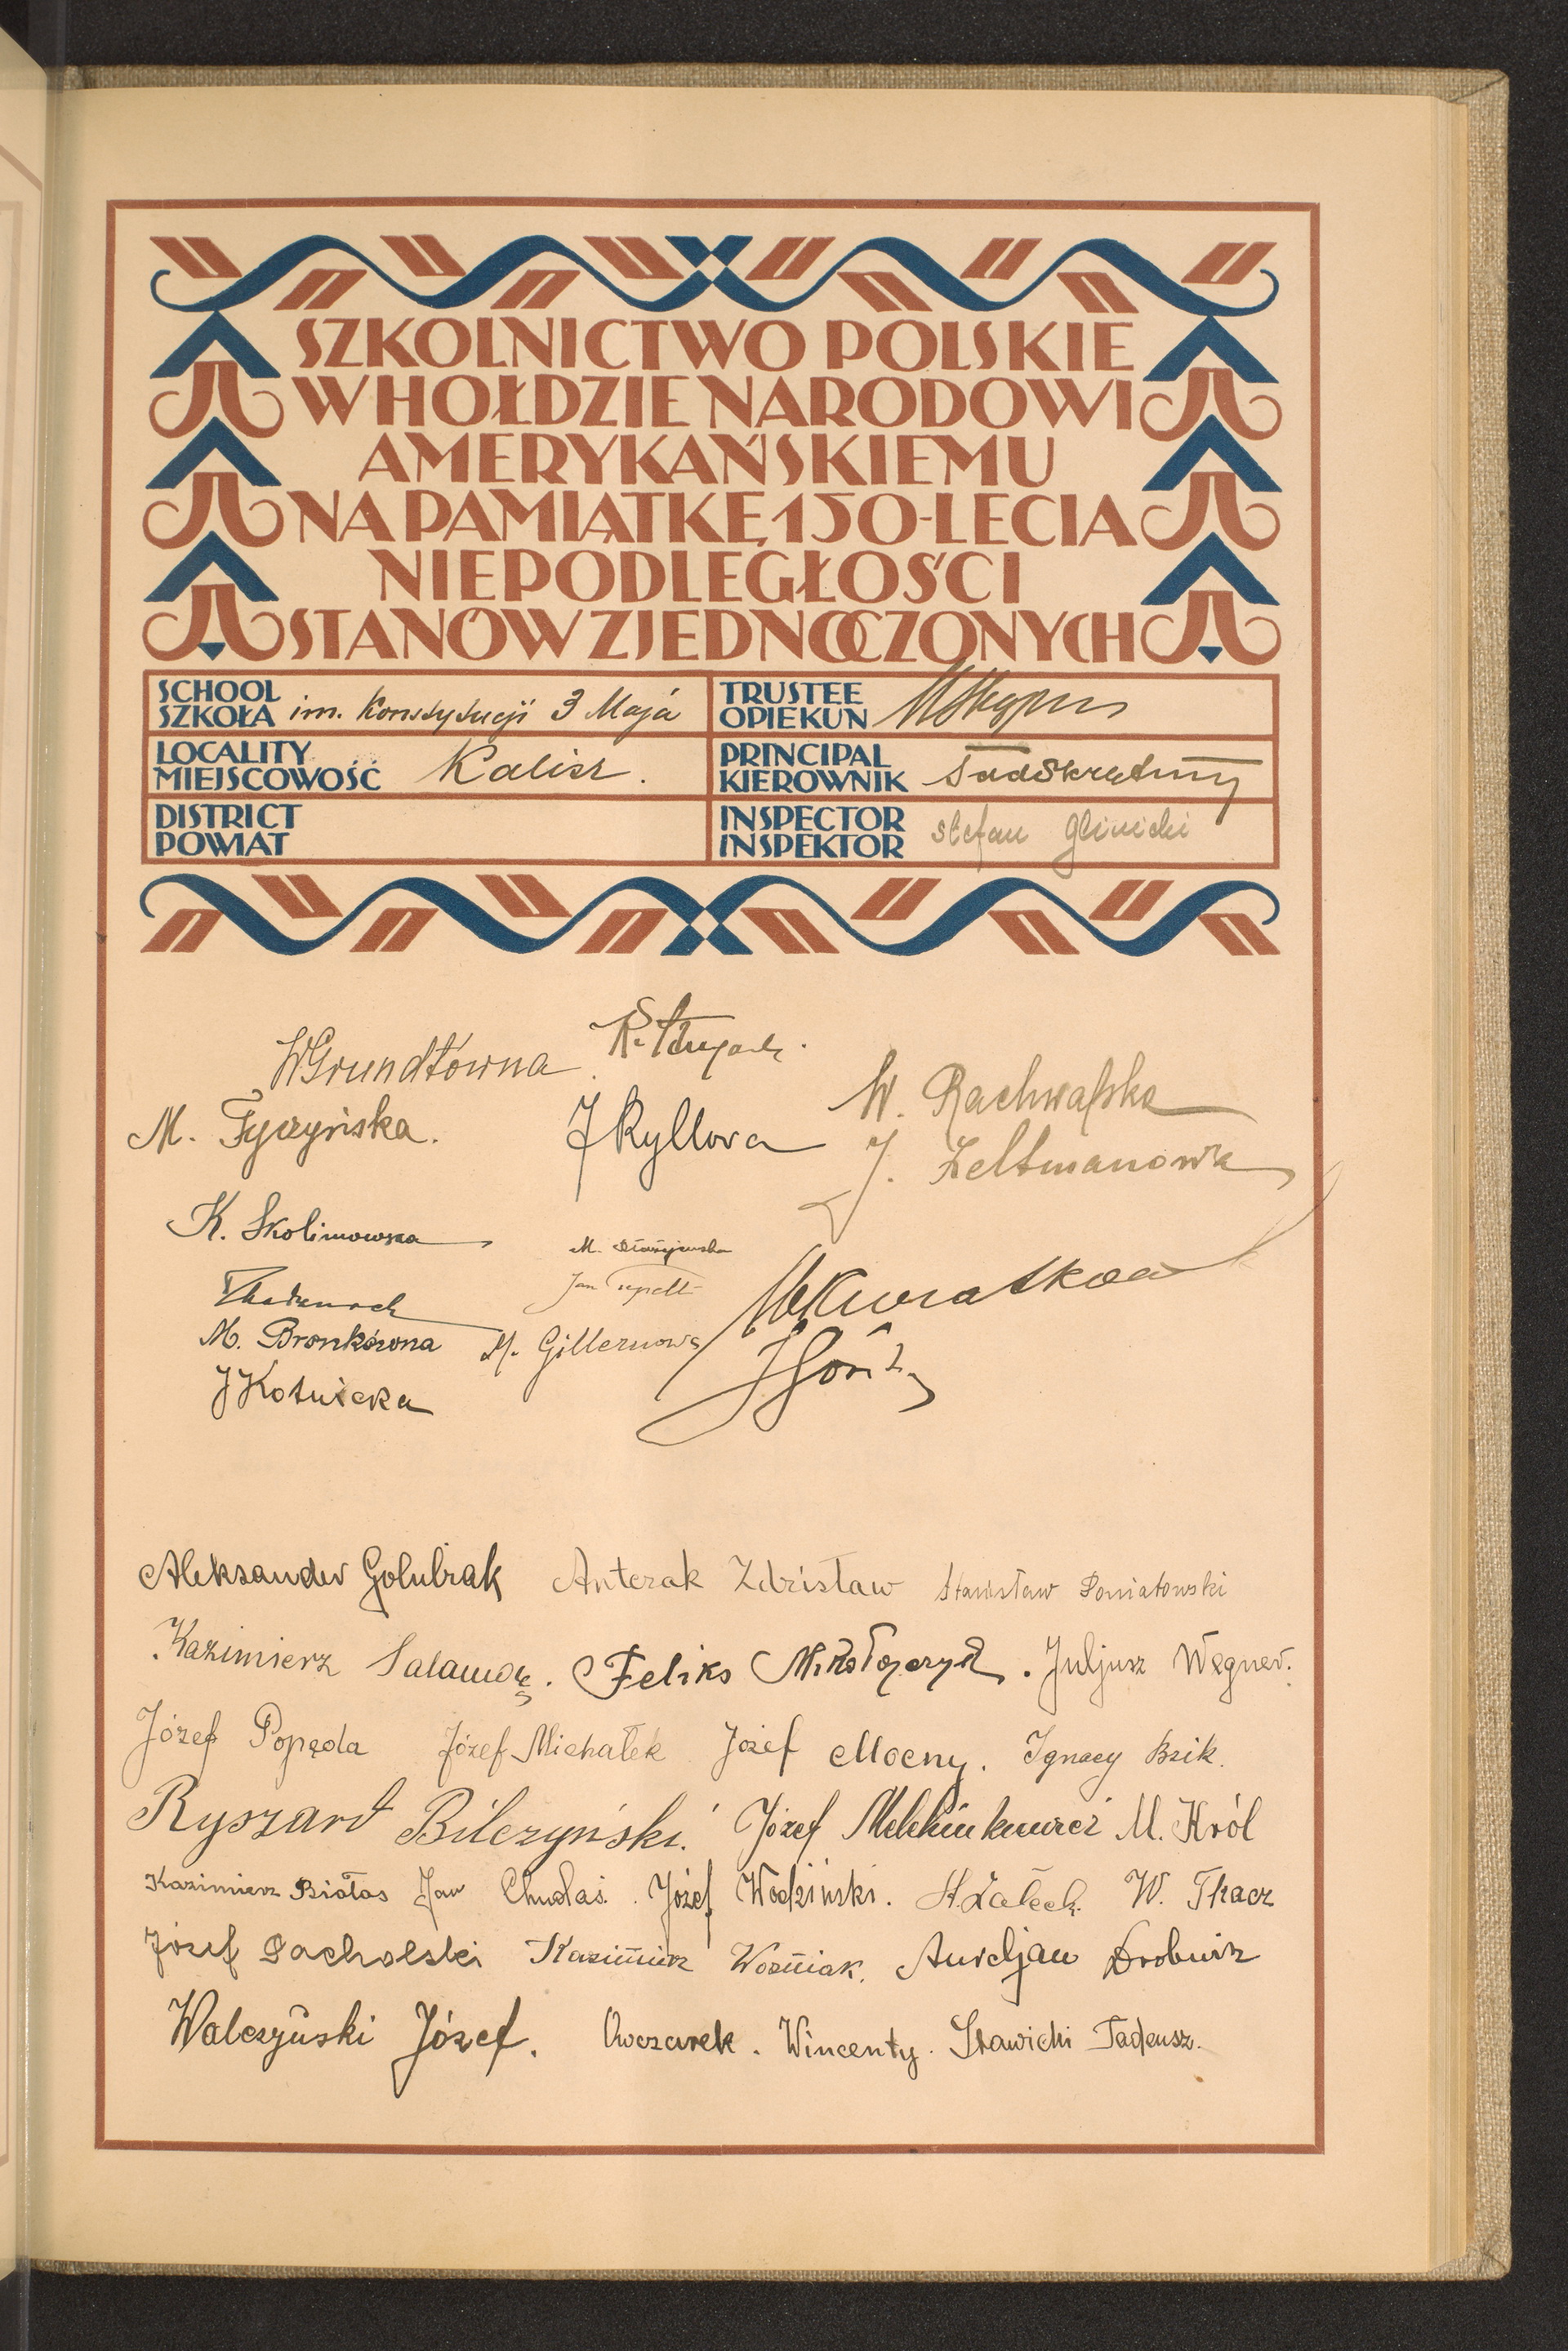 SZKOLNICTWO POLSKIE
W HOŁDZIE NARODOWI
AMERYKAŃSKIEMU
NA PAMIĄTKĘ 150-LECIA
NIEPODLEGŁOŚCI
STANÓW ZJEDNOCZONYCH
SCHOOL
SZKOŁA im. Konstytucji 3 Maja
TRUSTEE
OPIEKUN
LOCALITY
MIEJSCOWOŚĆ Kalisz.
PRINCIPAL
KIEROWNIK
DISTRICT
POWIAT
INSPECTOR
INSPEKTOR Stefan Glinicki
WGrundtówna
M. Tyczyńska.
J Ryllowa
W. Rachwalska
J. Zeltmanowa
K. Skolimowska
Jan
M. Bronkówna M. Gillernowa
J Kotnicka
Aleksander Golubiak Antczak Zdzisław Stanisław Poniatowski
Kazimierz Feliks Mikołajczyk. Juljusz Wegner.
Józef Popęda Józef Michałek Józef Mocny. Ignacy Bzik.
Ryszard Bilczyński. Józef M. Król
Kazimierz Białas Jan Chudaś. Józef Wodziński. W. Tkacz
Józef Pacholski Kazimierz Woźniak. Aureljan Drobnik
Walczyński Józef. Owczarek. Wincenty. Sławicki Tadeusz.